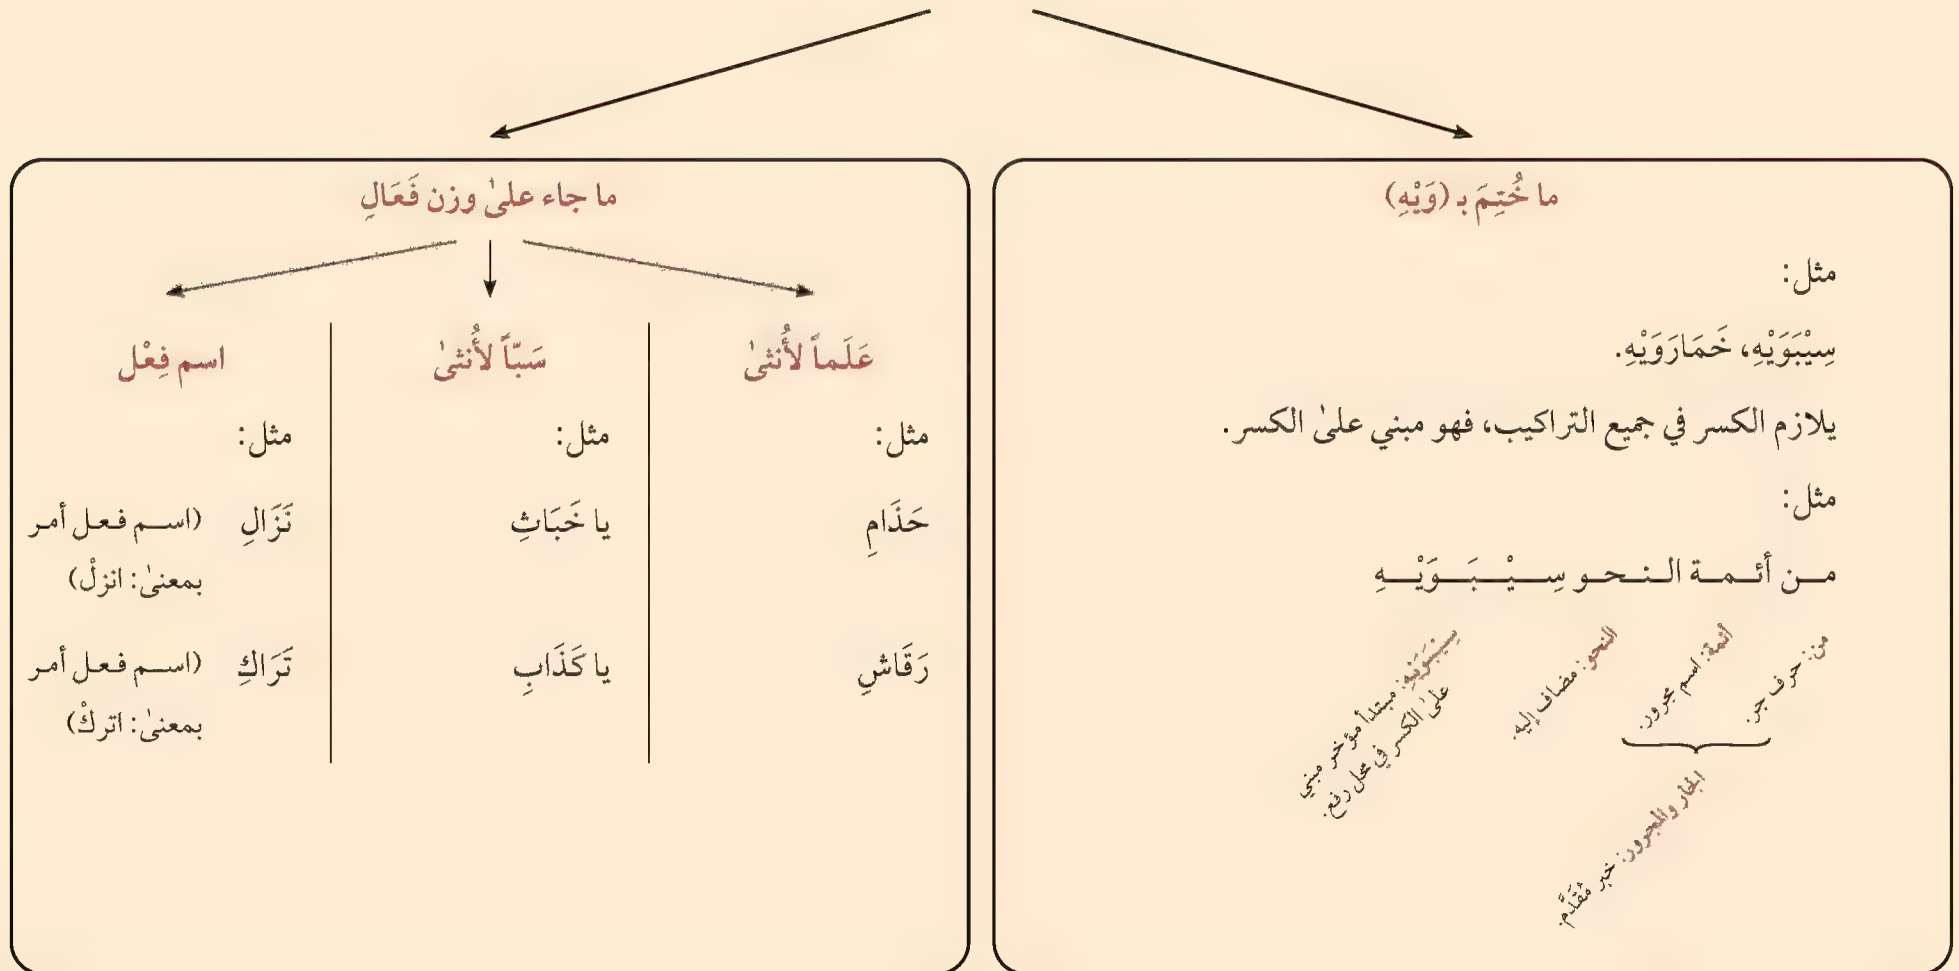 ما خُتِمَ بـ (وَيْهِ)
مثل:
سِيْبَوَيْهِ، خَمَارَوَيْهِ.
يلازم الكسر في جميع التراكيب، فهو مبني علىٰ الكسر.
مثل:
مـن أئـمـة الـنـحـو سِـيْـبَـوَيْـهِ
من: حرف جر.
أئمة: اسم مجرور.
الجار والمجرور: خبر مُقَدَّم.
النحو: مضاف إليه.
سِيْبَوَيْهِ: مبتدأ مؤخر مبني
علىٰ الكسر في محل رفع.
ما جاء علىٰ وزن فَعَالِ
عَلَماً لأُنثىٰ
مثل:
حَذَامِ
رَقَاشِ
سَبّاً لأُنثىٰ
مثل:
يا خَبَاثِ
يا كَذَابِ
اسم فِعْل
مثل:
نَزَالِ (اسـم فعـل أمـر
بمعنىٰ: انزلْ)
تَرَاكِ (اسـم فعـل أمـر
بمعنىٰ: اتركْ)